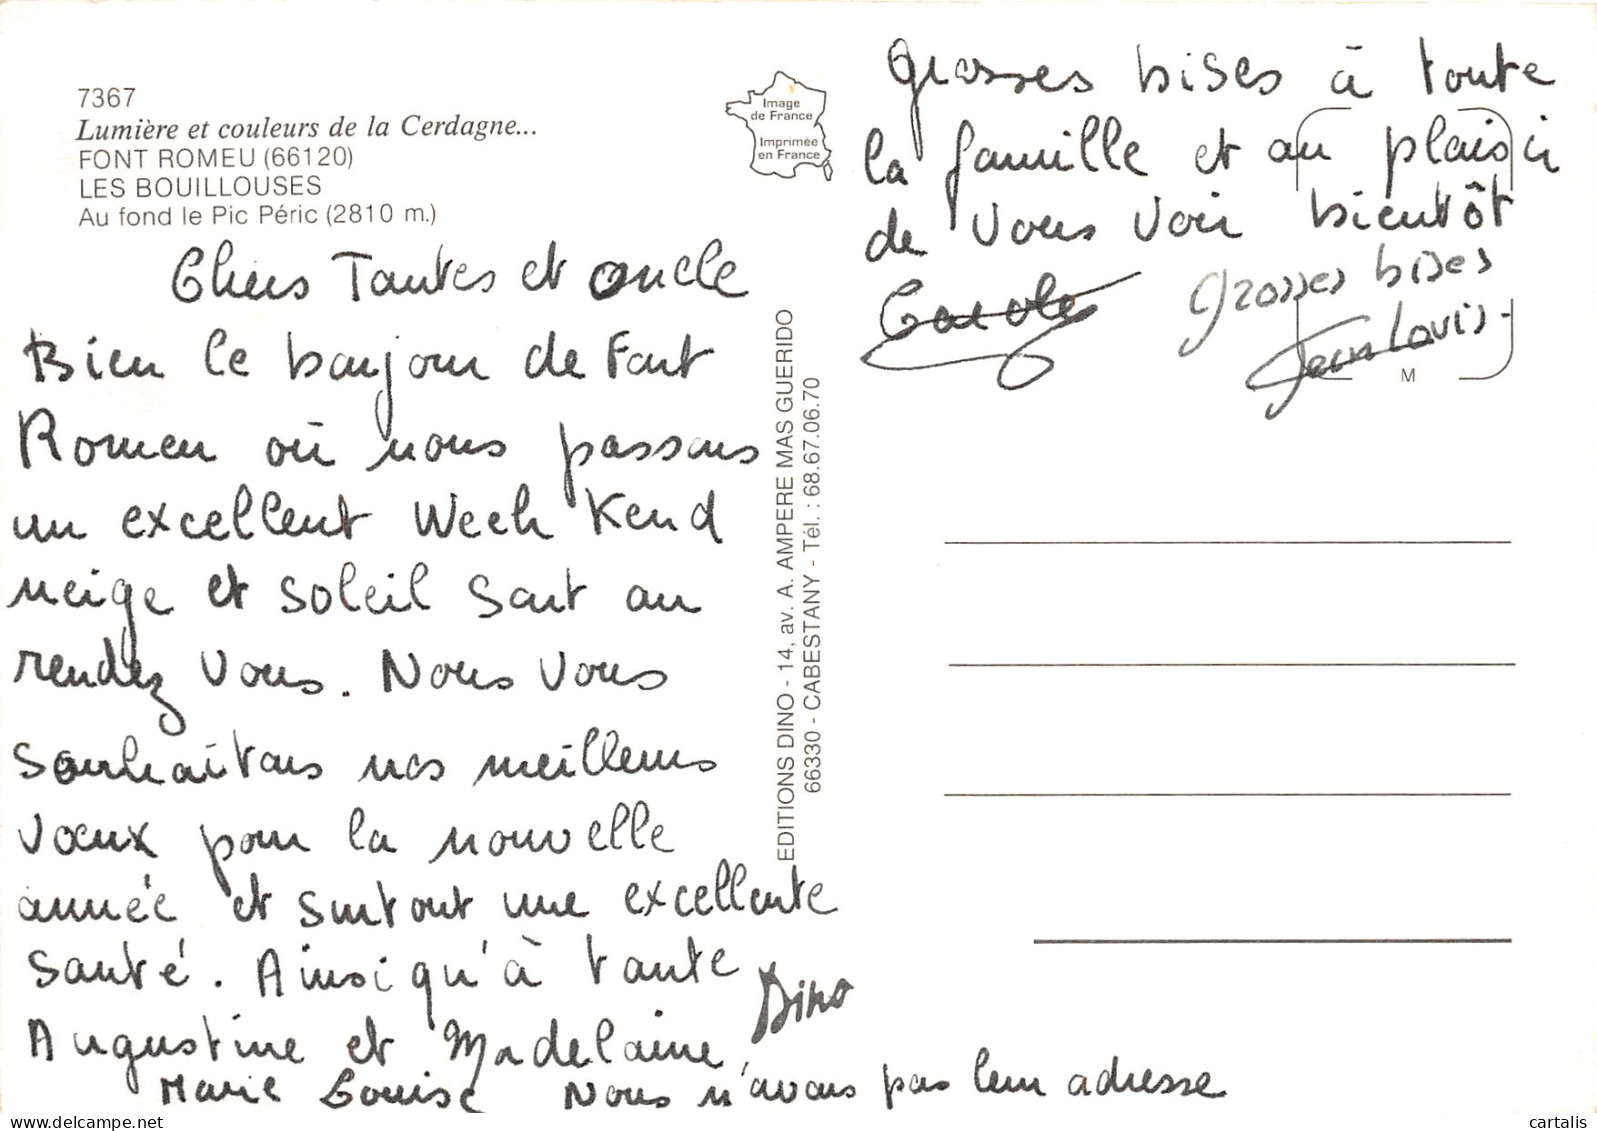 7367
Lumière et couleurs de la Cerdagne...
FONT ROMEU (66120)
LES BOUILLOUSES
Au fond le Pic Péric (2810 m.)
Image
de France
Imprimée
en France
Chers Tantes et oncle
Bien le bonjour de Font
Romeu où nous passons
un excellent Week Kend
neige et soleil sont au
rendez vous. Nous vous
souhaitons nos meilleurs
vœux pour la nouvelle
année et surtout une excellente
santé. Ainsi qu'à tante
Augustine et Madelaine
Marie Louise Nous n'avons pas leur adresse
Dino
EDITIONS DINO - 14, av. A. AMPERE MAS GUERIDO
66330 - CABESTANY - Tél. : 68.67.06.70
Grosses bises à toute
la famille et au plaisir
de vous voir bientôt
Carole
Grosses bises
Jean Louis.
M
cartalis